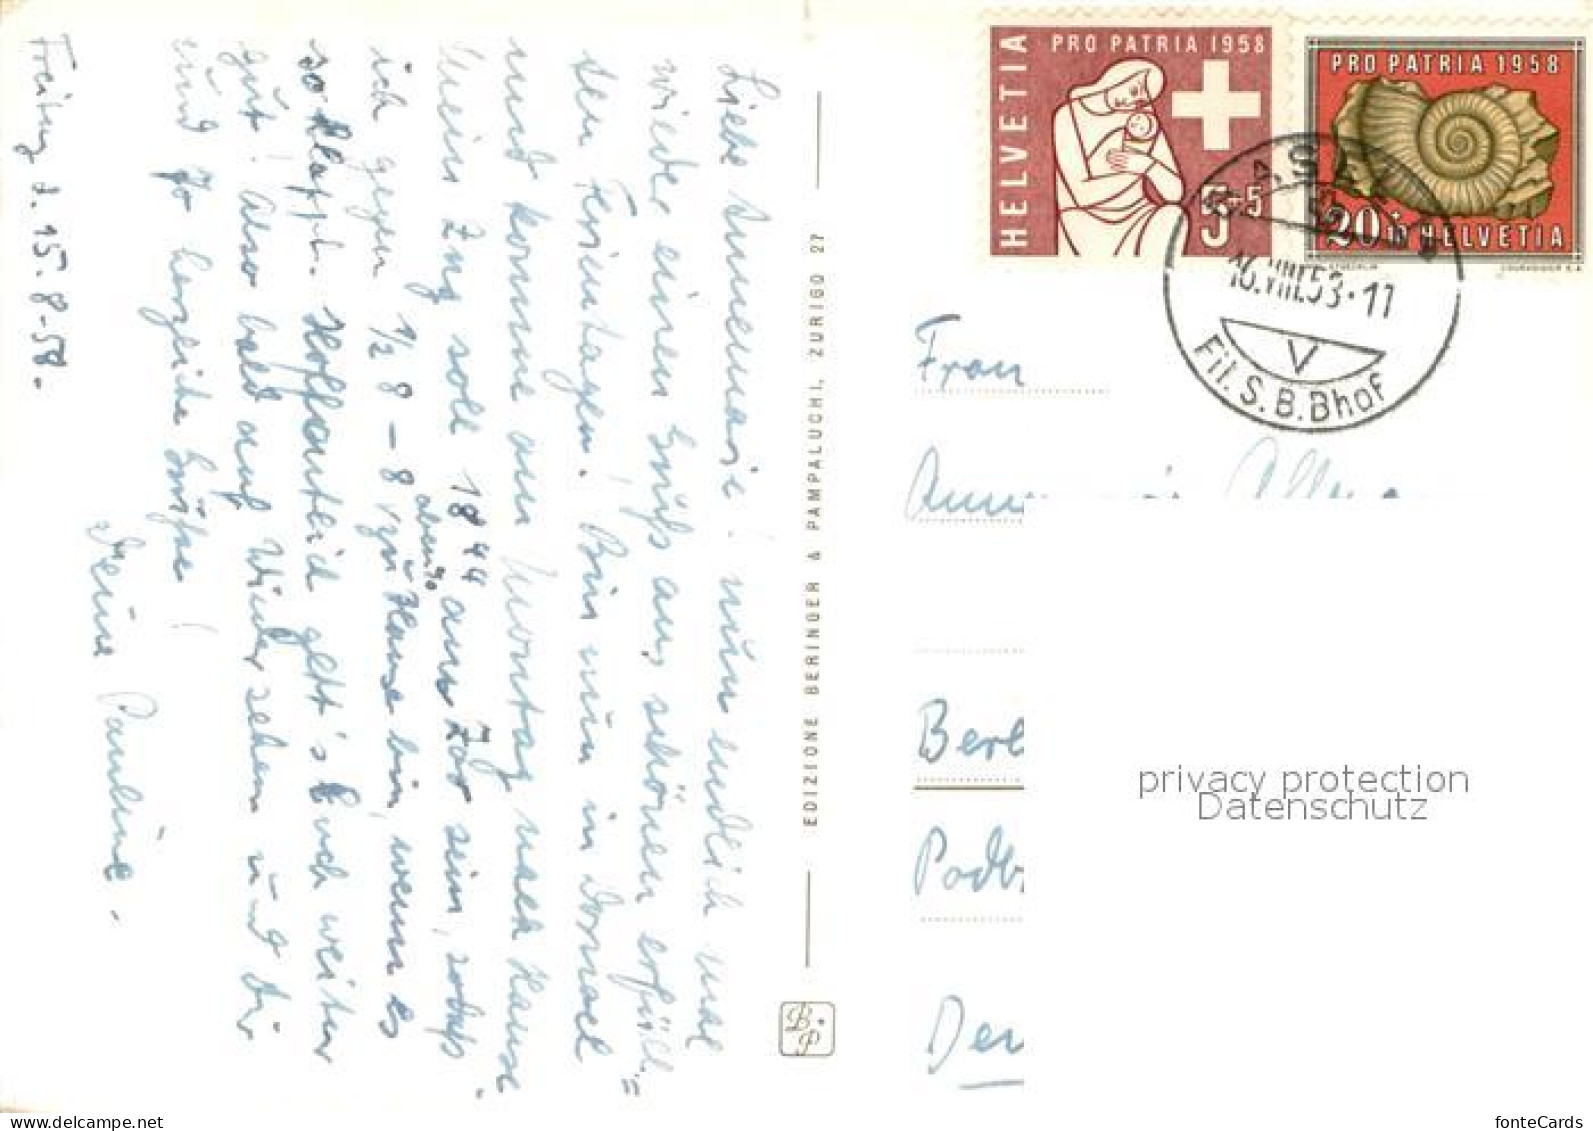 Freitag d. 15.8.58.
Liebe Annemarie! nun endlich mal
wieder einen Gruß aus schönen erfüll=
ten Ferientagen. Bin nun in Dornach
und komme am Montag nach Hause.
Mein Zug soll 18 44 am Zoo sein, sodaß
ich gegen 1/2 8 – 8 abends zu Hause bin, wenn es
so klappt. Hoffentlich geht's Euch weiter
gut! Also bald auf Wiedersehen und Dir
und herzliche Grüße!
Deine Pauline.
EDIZIONE BERINGER & PAMPALUCHI, ZURIGO 27
B P
HELVETIA
PRO PATRIA 1958
5+5
PRO PATRIA 1958
20+10 HELVETIA
COURVOISIER S.A.
BASEL 2
16.VIII.58-17
V
Fil. S.B.Bhof
Frau
Berl
Podb
privacy protection
Datenschutz
www.delcampe.net
fonteCards